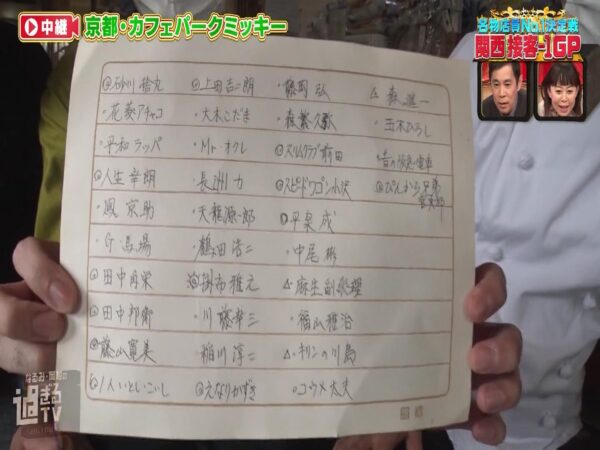 中継
京都・カフェパークミッキー
名物店員No.1決定戦
関西 接客-1GP
◎砂川捨丸 ◎上田吉二朗 ・藤岡弘 △森進一
・花菱アチャコ ・大木こだま ・森繁久彌 ・玉木ひろし
・平和ラッパ ・Mr.オクレ ◎スリムクラブ前田 ・昔の阪急電車
◎人生幸朗 ・長州力 ◎スピードワゴン小沢 ◎ぴんから兄弟
・鳳京助 ・天龍源一郎 ◎平泉成
・G馬場 ・鶴田浩二 ・中尾彬
◎田中角栄 ◎掛布雅之 △麻生副総理
◎田中邦衛 ・川藤幸三 ・福山雅治
◎藤山寛美 ・稲川淳二 △キリンの川島
◎1人いとしこいし ◎えなりかずき ・コウメ太夫
なるみ・岡村の
過ぎるTV